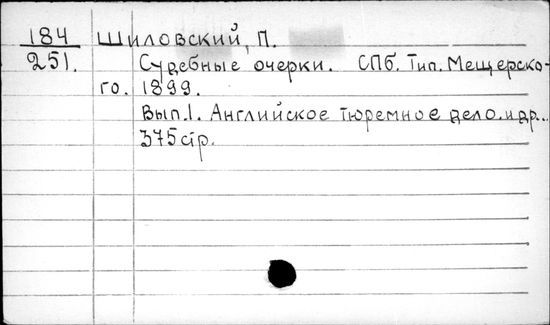 184 Шиловский, П.
251. Судебные очерки. СПб. Тип. Мещерско-
го. 1899.
Вып.1. Английское тюремное дело. и др...
375 стр.